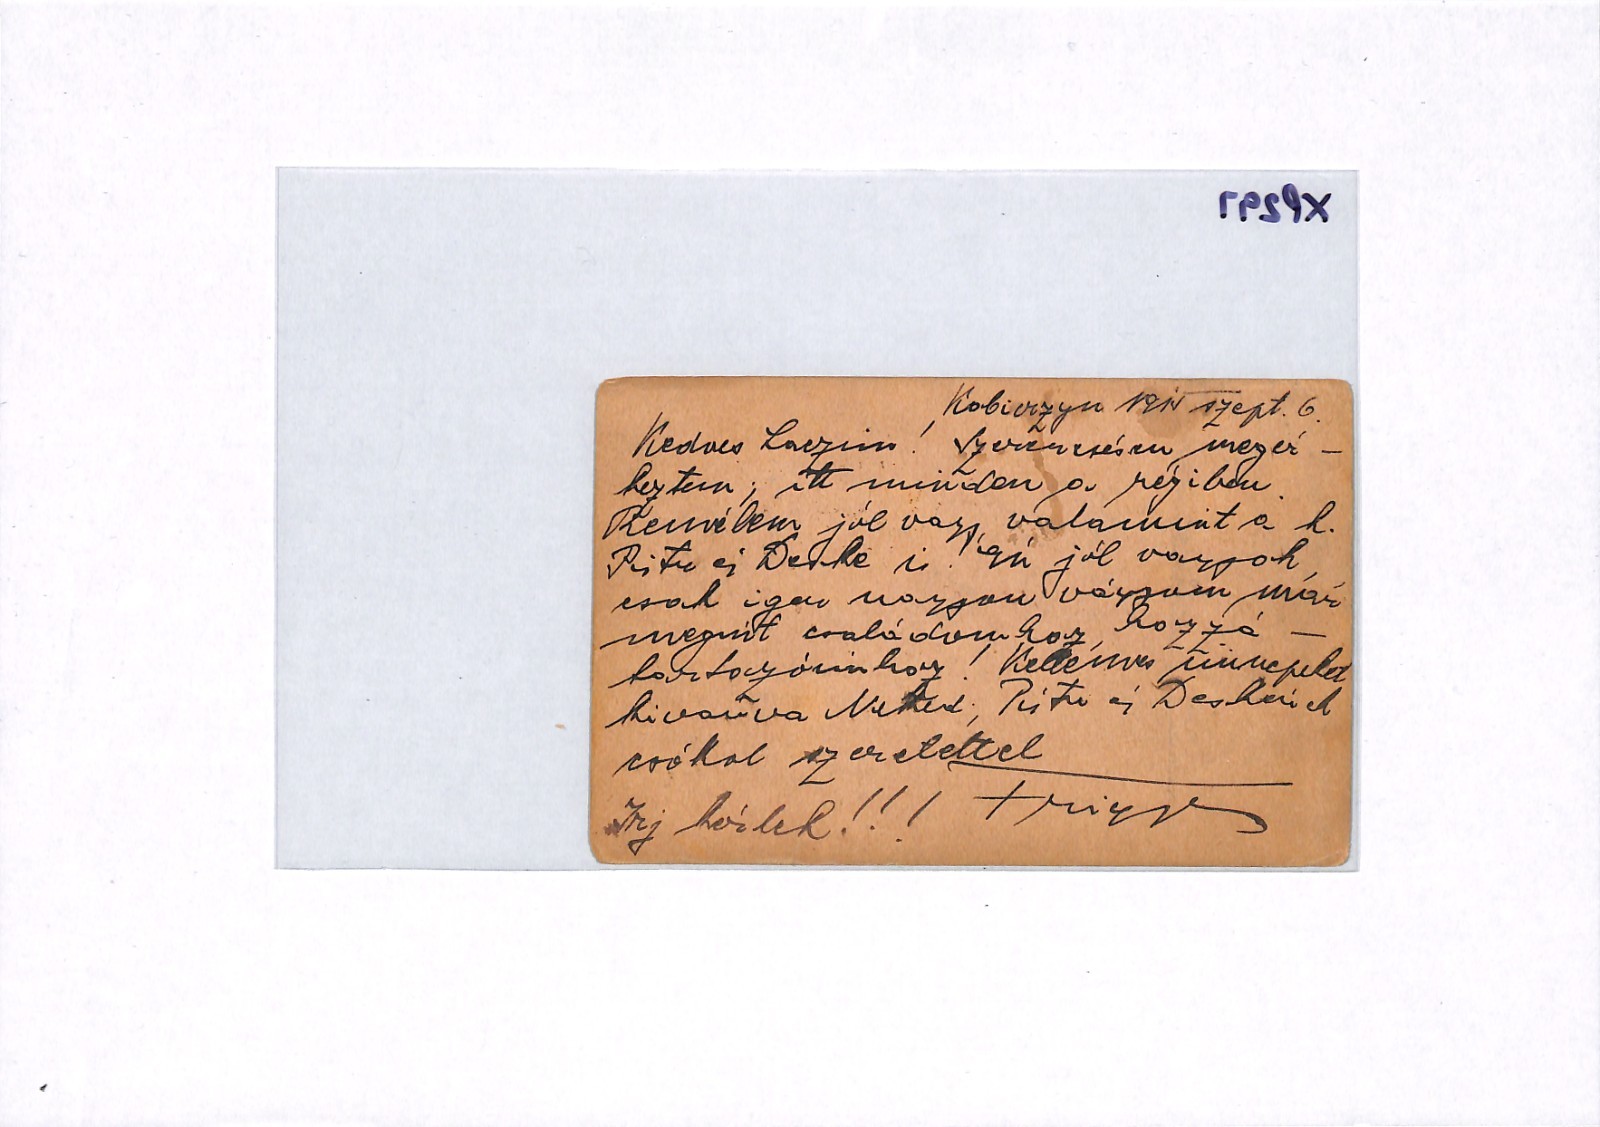 XP297
Kobierzyn 1915 szept. 6.
Kedves Laczim! Szerencsésen megér-
keztem, itt minden a régiben.
Remélem jól vagy, valamint a k.
Pista és Deske is! Én jól vagyok,
csak igen nagyon vágyom már
megint családomhoz, hozzá-
tartozóimhoz! Kellemes ünnepeket
kivánva Neked, Pista és Deskének
csókol szeretettel
Frigyes
Irj kérlek!!!